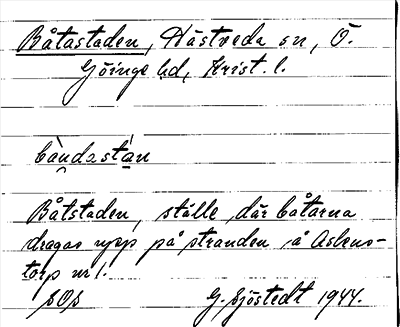 Båtastaden, Hästveda sn, Ö.
Göinge hd, Krist. l.
bàndəstán
Båtstaden, ställe där båtarna
dragas upp på stranden å Asbens-
torp nr 1.
sOs
G. Sjöstedt 1944.